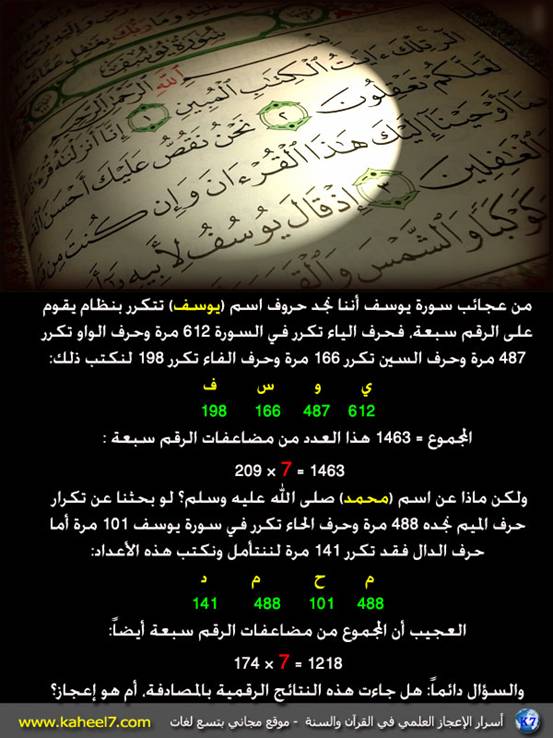 سورة يوسف
الله الرحمن الرحيم
الر تلك ءايت الكتب المبين ١ إنا أنزلنه
لعلكم تعقلون ٢ نحن نقص عليك أحسن
أوحينا إليك هذا القرءان وإن كنت من
الغفلين ٣ إذ قال يوسف لأبيه
كوكبا والشمس والقمر
من عجائب سورة يوسف أننا نجد حروف اسم (يوسف) تتكرر بنظام يقوم
على الرقم سبعة، فحرف الياء تكرر في السورة 612 مرة وحرف الواو تكرر
487 مرة وحرف السين تكرر 166 مرة وحرف الفاء تكرر 198 لنكتب ذلك:
ي و س ف
612 487 166 198
المجموع = 1463 هذا العدد من مضاعفات الرقم سبعة :
1463 = 7 × 209
ولكن ماذا عن اسم (محمد) صلى الله عليه وسلم؟ لو بحثنا عن تكرار
حرف الميم نجده 488 مرة وحرف الحاء تكرر في سورة يوسف 101 مرة أما
حرف الدال فقد تكرر 141 مرة لنتأمل ونكتب هذه الأعداد:
م ح م د
488 101 488 141
العجيب أن المجموع من مضاعفات الرقم سبعة أيضاً:
1218 = 7 × 174
والسؤال دائماً: هل جاءت هذه النتائج الرقمية بالمصادفة، أم هو إعجاز؟
K7 أسرار الإعجاز العلمي في القرآن والسنة - موقع مجاني بتسع لغات www.kaheel7.com